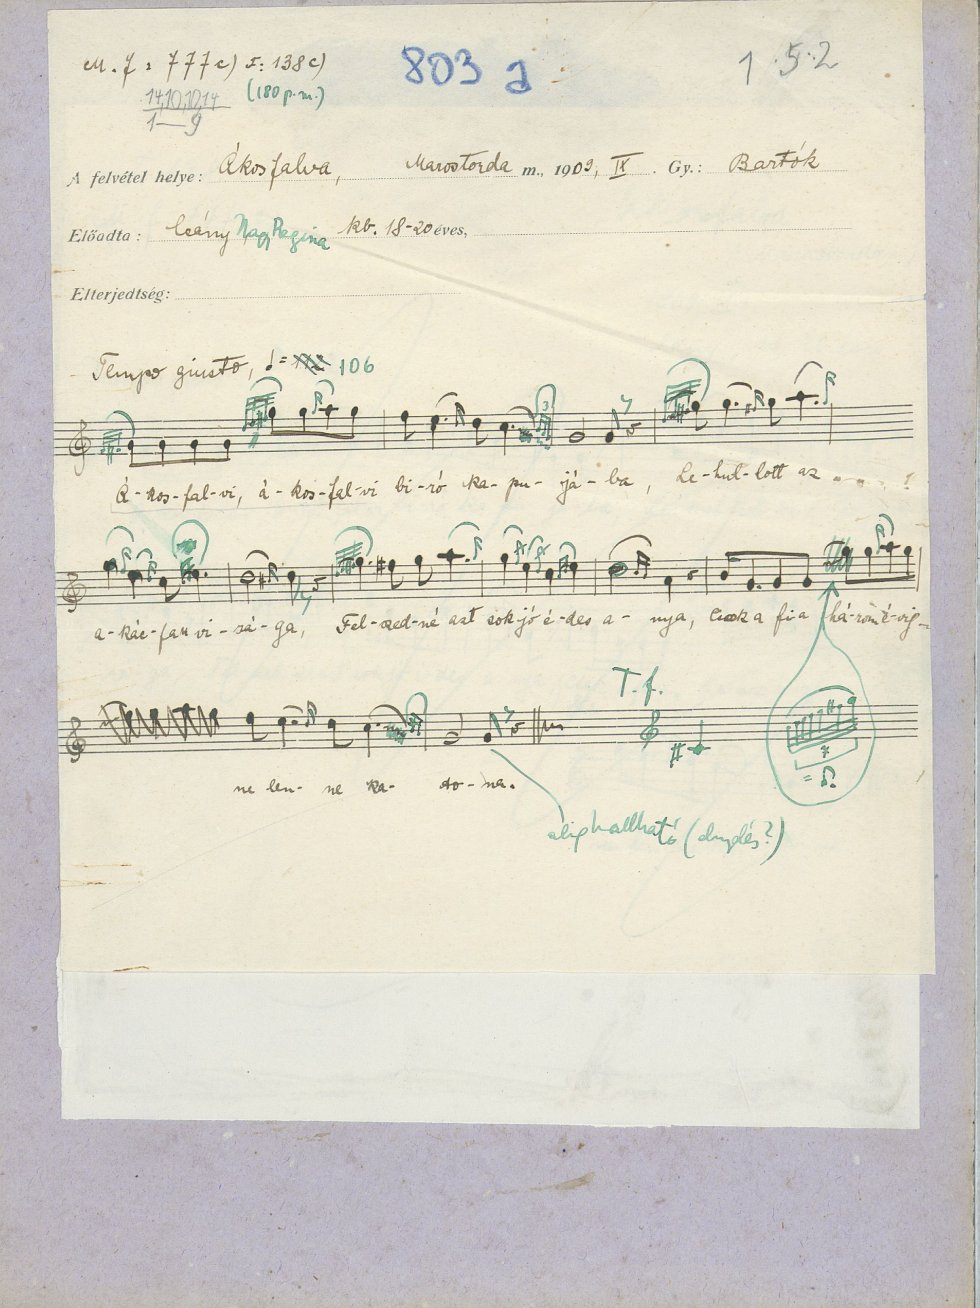 M. F: 777c) I: 138c) 803 a 1.5.2
14,10,10,14 (180 p.m.)
1—9
A felvétel helye: Ákosfalva, Marostorda m., 1909, IX. Gy.: Bartók
Előadta: leány Nagy Regina kb. 18-20 éves,
Elterjedtség:
Tempo giusto, = 106
Á-kos-fal-vi, á-kos-fal-vi bi-ró ka-pu-já-ba, Le-hul-lott az
a-kác-fa vi-rá-ga, Fel-szed-né azt sok jó é-des a-nya, Csak a fi-a három é-vig
ne len-ne ka-to-na.
T. f.
alig hallható (elnyelés?)